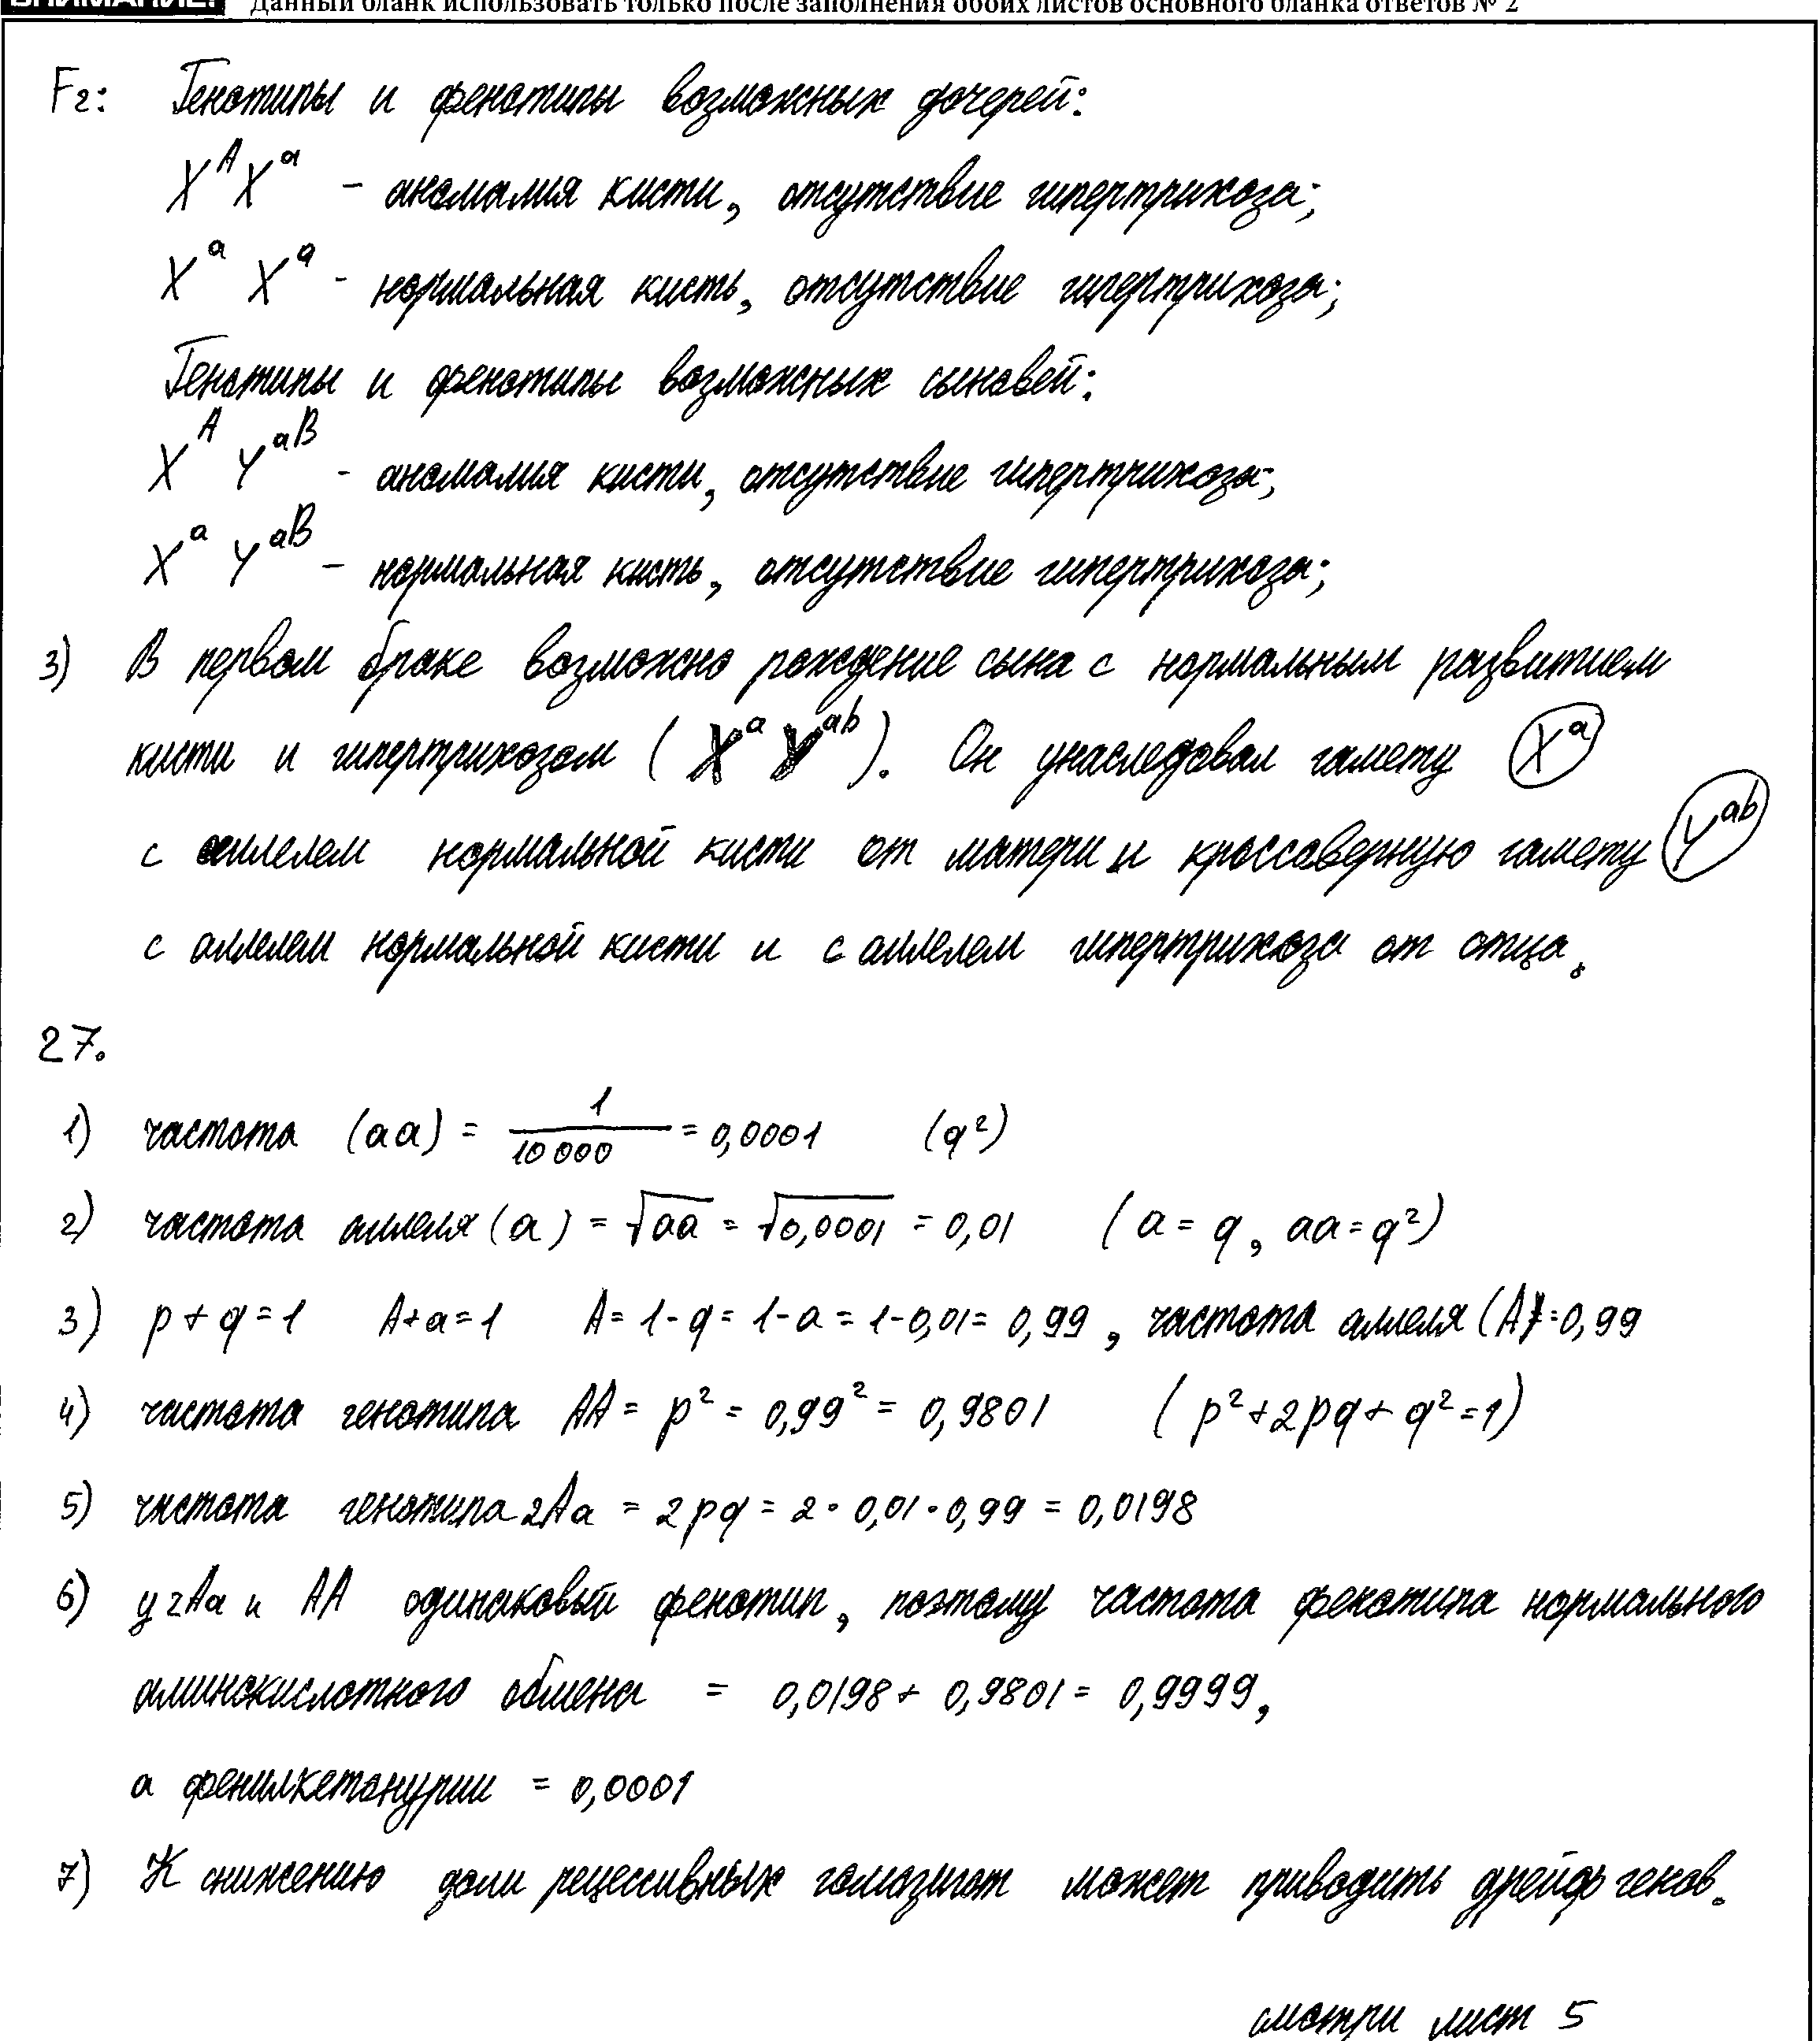 ВНИМАНИЕ! Данный бланк использовать только после заполнения обоих листов основного бланка ответов № 2
F2: Генотипы и фенотипы возможных дочерей:
X^A X^a - аномалия кисти, отсутствие гипертрихоза;
X^a X^a - нормальная кисть, отсутствие гипертрихоза;
Генотипы и фенотипы возможных сыновей:
X^A Y^aB - аномалия кисти, отсутствие гипертрихоза;
X^a Y^aB - нормальная кисть, отсутствие гипертрихоза;
3) В первом браке возможно рождение сына с нормальным развитием
кисти и гипертрихозом (X^a Y^ab). Он унаследовал гамету X^a
с аллелем нормальной кисти от матери и кроссоверную гамету Y^ab
с аллелем нормальной кисти и с аллелем гипертрихоза от отца.
27.
1) частота (aa) = 1/10 000 = 0,0001 (q²)
2) частота аллеля (a) = √aa = √0,0001 = 0,01 (a = q, aa = q²)
3) p + q = 1 A + a = 1 A = 1 - q = 1 - a = 1 - 0,01 = 0,99, частота аллеля (A) = 0,99
4) частота генотипа AA = p² = 0,99² = 0,9801 (p² + 2pq + q² = 1)
5) частота генотипа 2Aa = 2pq = 2 · 0,01 · 0,99 = 0,0198
6) у 2Aa и AA одинаковый фенотип, поэтому частота фенотипа нормального
аминокислотного обмена = 0,0198 + 0,9801 = 0,9999,
а фенилкетонурии = 0,0001
7) К снижению доли рецессивных гомозигот может приводить дрейф генов.
смотри лист 5